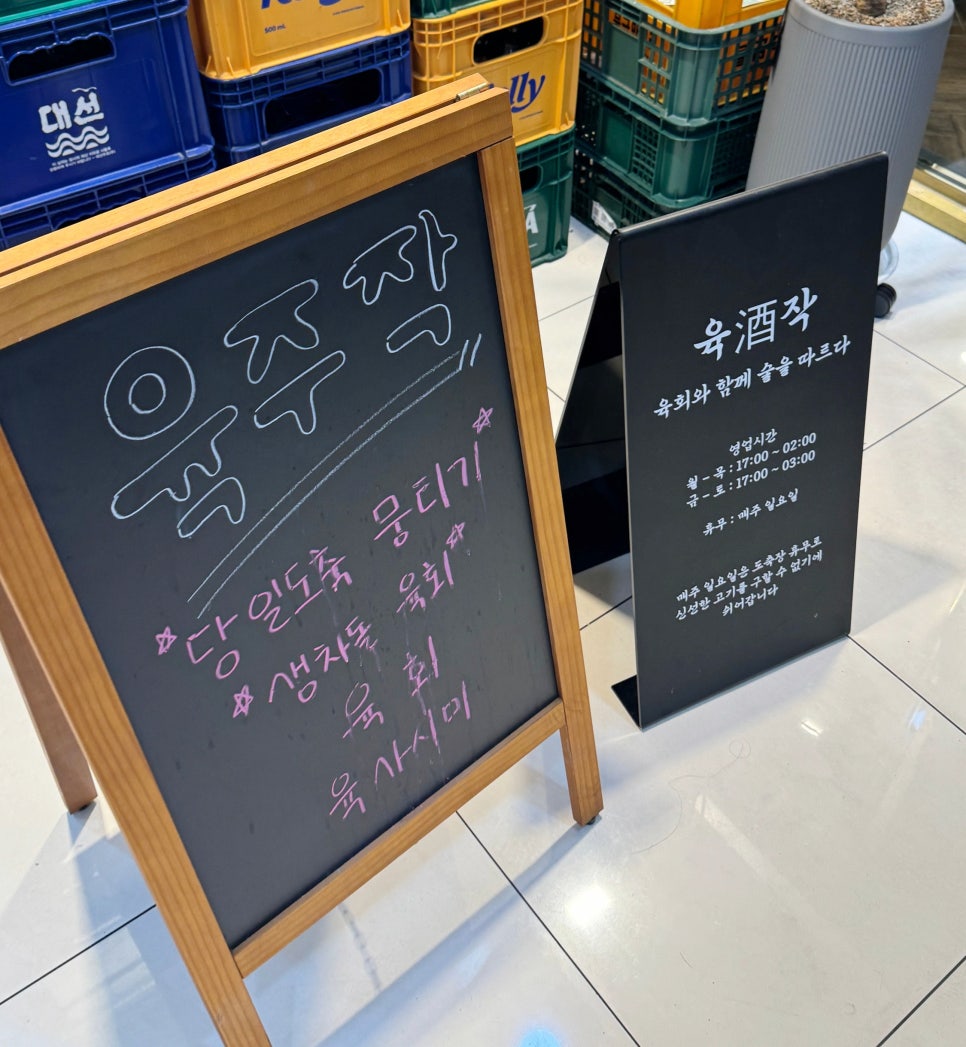 대선
500 mL
lly
육주작
☆당일도축 뭉티기☆
☆생차돌 육회☆
육회
육사시미
육酒작
육회와 함께 술을 따르다
영업시간
월 - 목 : 17:00 ~ 02:00
금 - 토 : 17:00 ~ 03:00
휴무 : 매주 일요일
매주 일요일은 도축장 휴무로
신선한 고기를 구할 수 없기에
쉬어갑니다